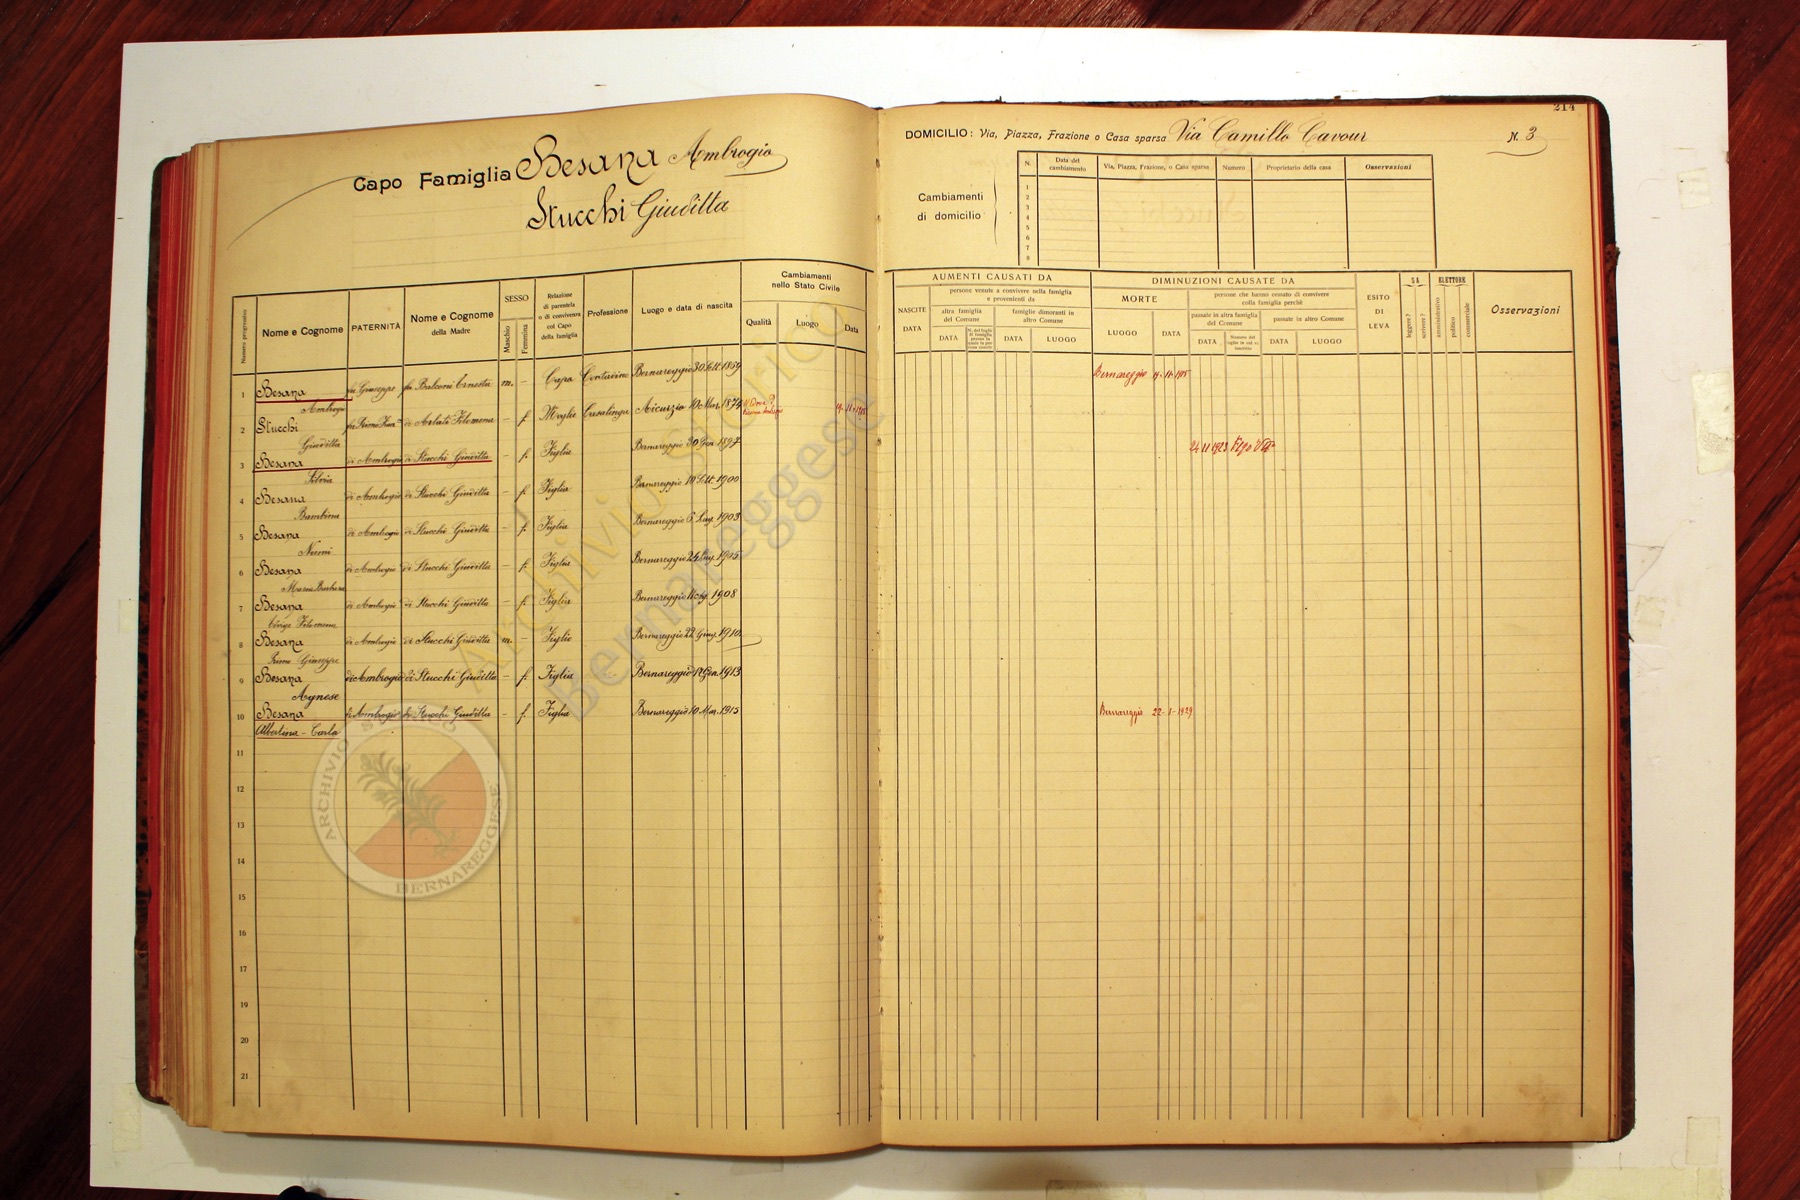 214
Capo Famiglia Besana Ambrogio
Stucchi Giuditta
DOMICILIO: Via, Piazza, Frazione o Casa sparsa Via Camillo Cavour N. 3
Cambiamenti di domicilio
N. Data del cambiamento Via, Piazza, Frazione, o Casa sparsa Numero Proprietario della casa Osservazioni
1
2
3
4
5
6
7
8
Numero progressivo Nome e Cognome PATERNITÀ Nome e Cognome della Madre SESSO Maschio Femmina Relazione di parentela o di convivenza col Capo della famiglia Professione Luogo e data di nascita Cambiamenti nello Stato Civile Qualità Luogo Data
AUMENTI CAUSATI DA
NASCITE DATA
persone venute a convivere nella famiglia e provenienti da
altra famiglia del Comune
DATA
famiglie dimoranti in altro Comune
DATA LUOGO
DIMINUZIONI CAUSATE DA
MORTE
LUOGO DATA
persone che hanno cessato di convivere colla famiglia perchè
passate in altra famiglia del Comune
DATA
passate in altro Comune
DATA LUOGO
ESITO DI LEVA
SA
leggere?
scrivere?
ELETTORE
amministrativo
politico
commerciale
Osservazioni
1 Besana Ambrogio fu Giuseppe fu Balconi Ernesta m. – Capo Contadino Bernareggio 30 Ott. 1859 Bernareggio
2 Stucchi Giuditta di Arlati Filomena – f. Moglie Casalinga Aicurzio 10 Mar. 1874
3 Besana Silvia di Ambrogio di Stucchi Giuditta – f. Figlia Bernareggio 30 Gen. 1897 24 11 1923
4 Besana Bambina di Ambrogio di Stucchi Giuditta – f. Figlia Bernareggio 10 Sett. 1900
5 Besana Noemi di Ambrogio di Stucchi Giuditta – f. Figlia Bernareggio 6 1903
6 Besana Maria Barbera di Ambrogio di Stucchi Giuditta – f. Figlia Bernareggio 24 1905
7 Besana Filomena di Ambrogio di Stucchi Giuditta – f. Figlia Bernareggio 1908
8 Besana Primo Giuseppe di Ambrogio di Stucchi Giuditta m. – Figlio Bernareggio 22 Giug. 1910
9 Besana Agnese di Ambrogio di Stucchi Giuditta – f. Figlia Bernareggio 17 Gen. 1913
10 Besana Albertina - Carla di Ambrogio di Stucchi Giuditta – f. Figlia Bernareggio 10 Mar. 1915 Bernareggio 22-1-1929
11
12
13
14
15
16
17
18
19
20
21
Archivio Storico
Bernareggese
ARCHIVIO STORICO
BERNAREGGESE